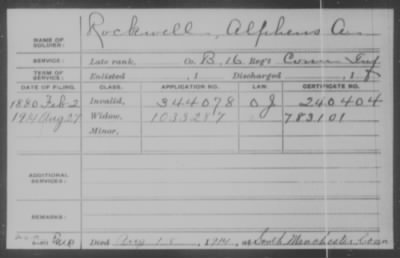 NAME OF SOLDIER: Rockwell, Alphens A
SERVICE: Late rank, Co. B, 16 Reg't Conn Inf
TERM OF SERVICE: Enlisted , 1 Discharged , 1
DATE OF FILING. CLASS. APPLICATION NO. LAW. CERTIFICATE NO.
1880 Feb 2 Invalid, 344078 240404
Aug 27 Widow, 1033287 783101
Minor,
ADDITIONAL SERVICES:
REMARKS:
Died Aug 1914, at South Manchester Conn